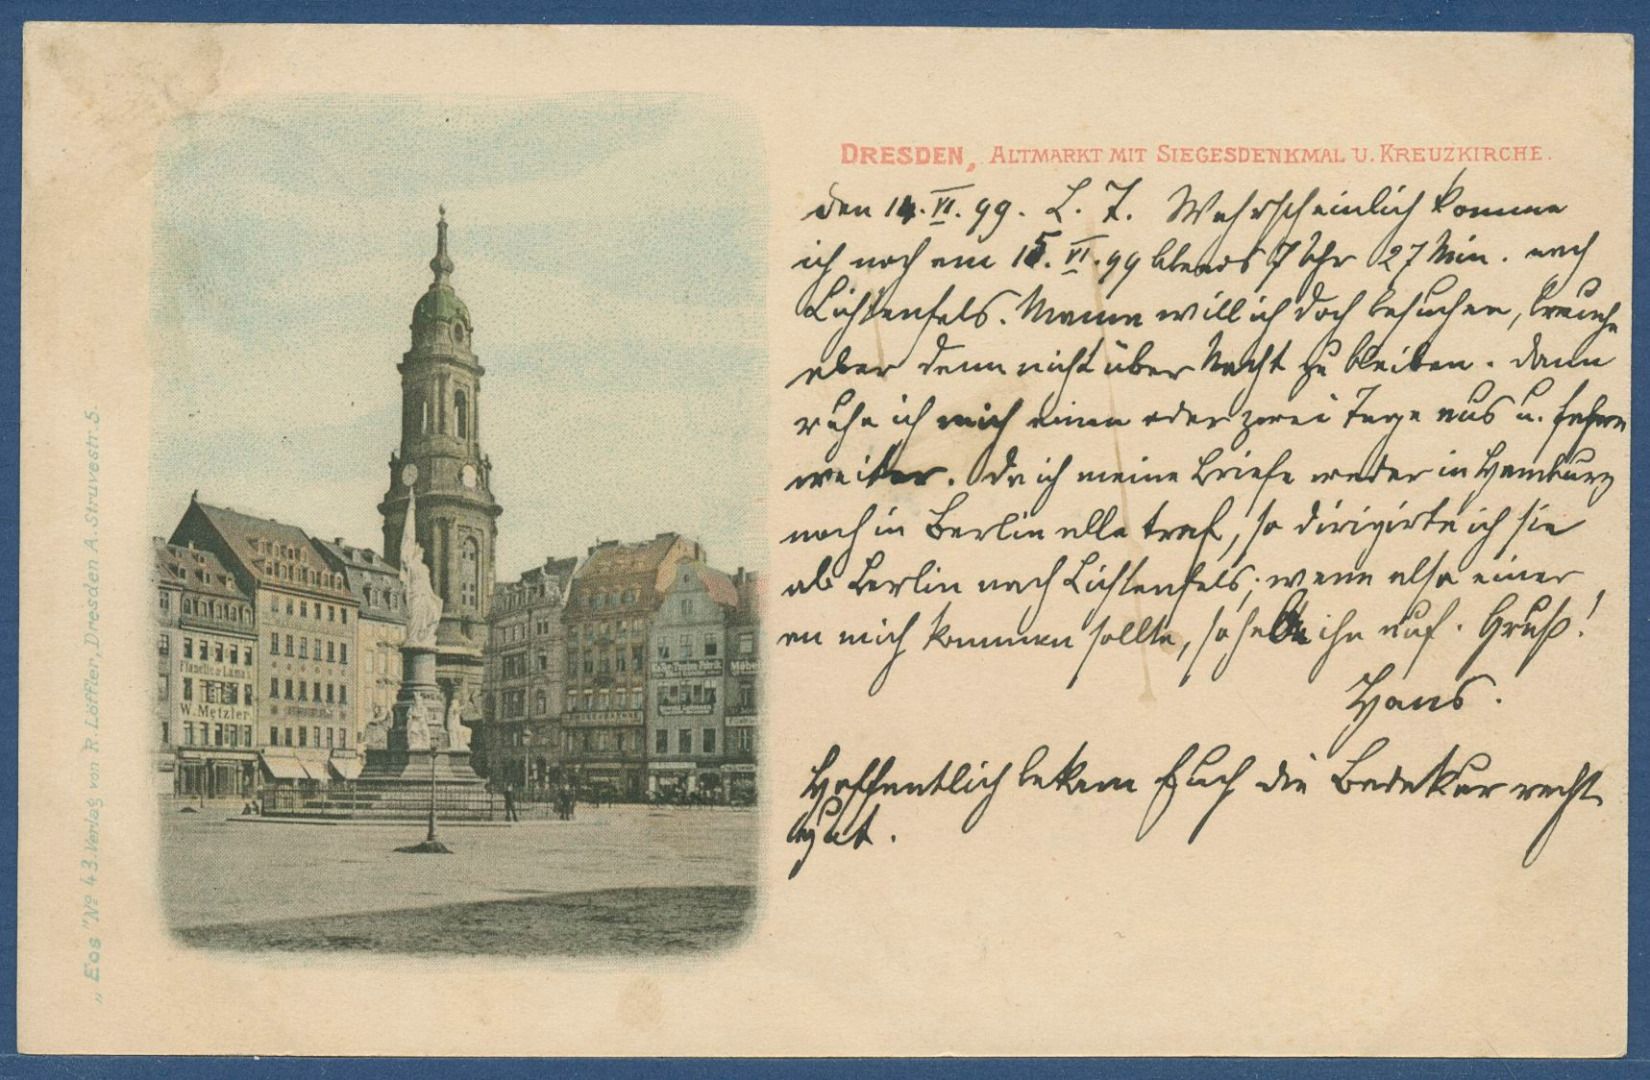 DRESDEN, ALTMARKT MIT SIEGESDENKMAL U. KREUZKIRCHE.
den 14. VI. 99. L. T. Wahrscheinlich komme
ich noch am 15. VI. 99 Abends 7 Uhr 27 Min. nach
Lichtenfels. Mama will ich doch besuchen, brauche
aber denn nicht über Nacht zu bleiben. Dann
ruhe ich mich einen oder zwei Tage aus u. fahre
weiter. Da ich meine Briefe weder in Hamburg
noch in Berlin alle traf, so dirigirte ich sie
ab Berlin nach Lichtenfels; wenn also einer
an mich kommen sollte, so hebt ihn auf. Gruß!
Hans.
Hoffentlich bekam Euch die Badekur recht
gut.
"Eos" No 43. Verlag von R. Löffler, Dresden A. Struvestr. 5.
Flanelle Lamas
W. Metzler
Möbel